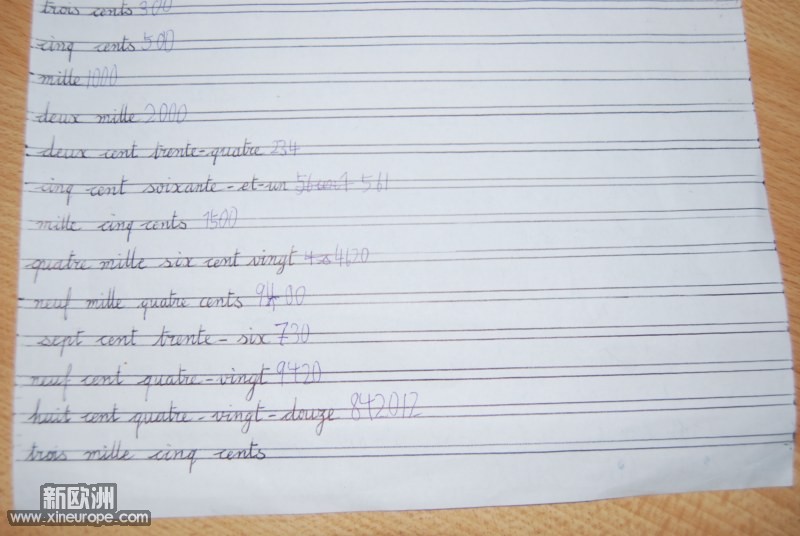 trois cents 300
cinq cents 500
mille 1000
deux mille 2000
deux cent trente-quatre 234
cinq cent soixante-et-un 561
mille cinq cents 1500
quatre mille six cent vingt 4620
neuf mille quatre cents 9400
sept cent trente-six 730
neuf cent quatre-vingt 9420
huit cent quatre-vingt-douze 842012
trois mille cinq cents
新欧洲
www.xineurope.com